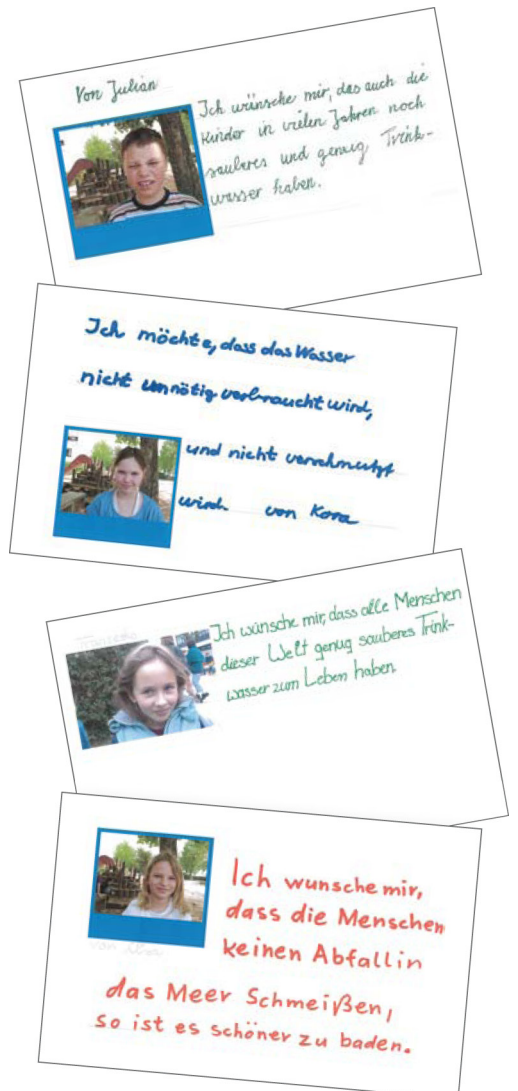 Von Julian
Ich wünsche mir, das auch die
Kinder in vielen Jahren noch
sauberes und genug Trink-
wasser haben.
Ich möchte, dass das Wasser
nicht unnötig verbraucht wird,
und nicht verschmutzt
wird. von Kora
Ich wünsche mir, dass alle Menschen
dieser Welt genug sauberes Trink-
wasser zum Leben haben.
Ich wunsche mir,
dass die Menschen
keinen Abfall in
das Meer Schmeißen,
so ist es schöner zu baden.
von